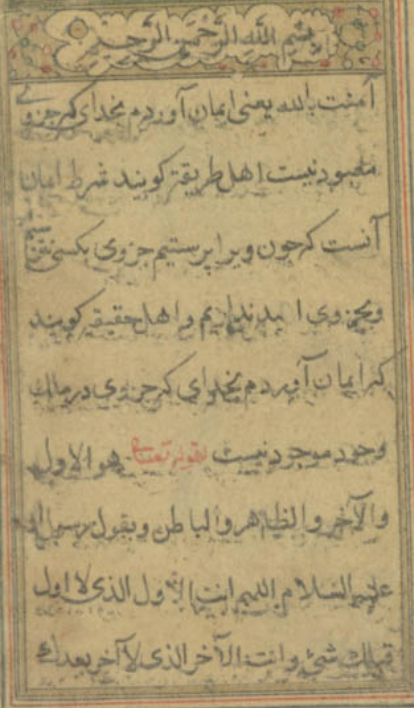 بسم الله الرحمن الرحیم
آمنت بالله یعنی ایمان آوردم بخدای که جز وی
معبود نیست اهل طریقة کویند شرط ایمان
آنست که چون ویرا پرستیم جز وی بکسی
وبجز وی امید نداریم و اهل حقیقه کویند
که ایمان آوردم بخدای که جز وی در ملك
وجود موجود نیست لقوله تعالی هو الاول
والآخر والظاهر والباطن وبقول رسول الله
علیه السلام اللهم انت الاول الذی لا اول
قبلك شیء وانت الآخر الذی لا آخر بعدك